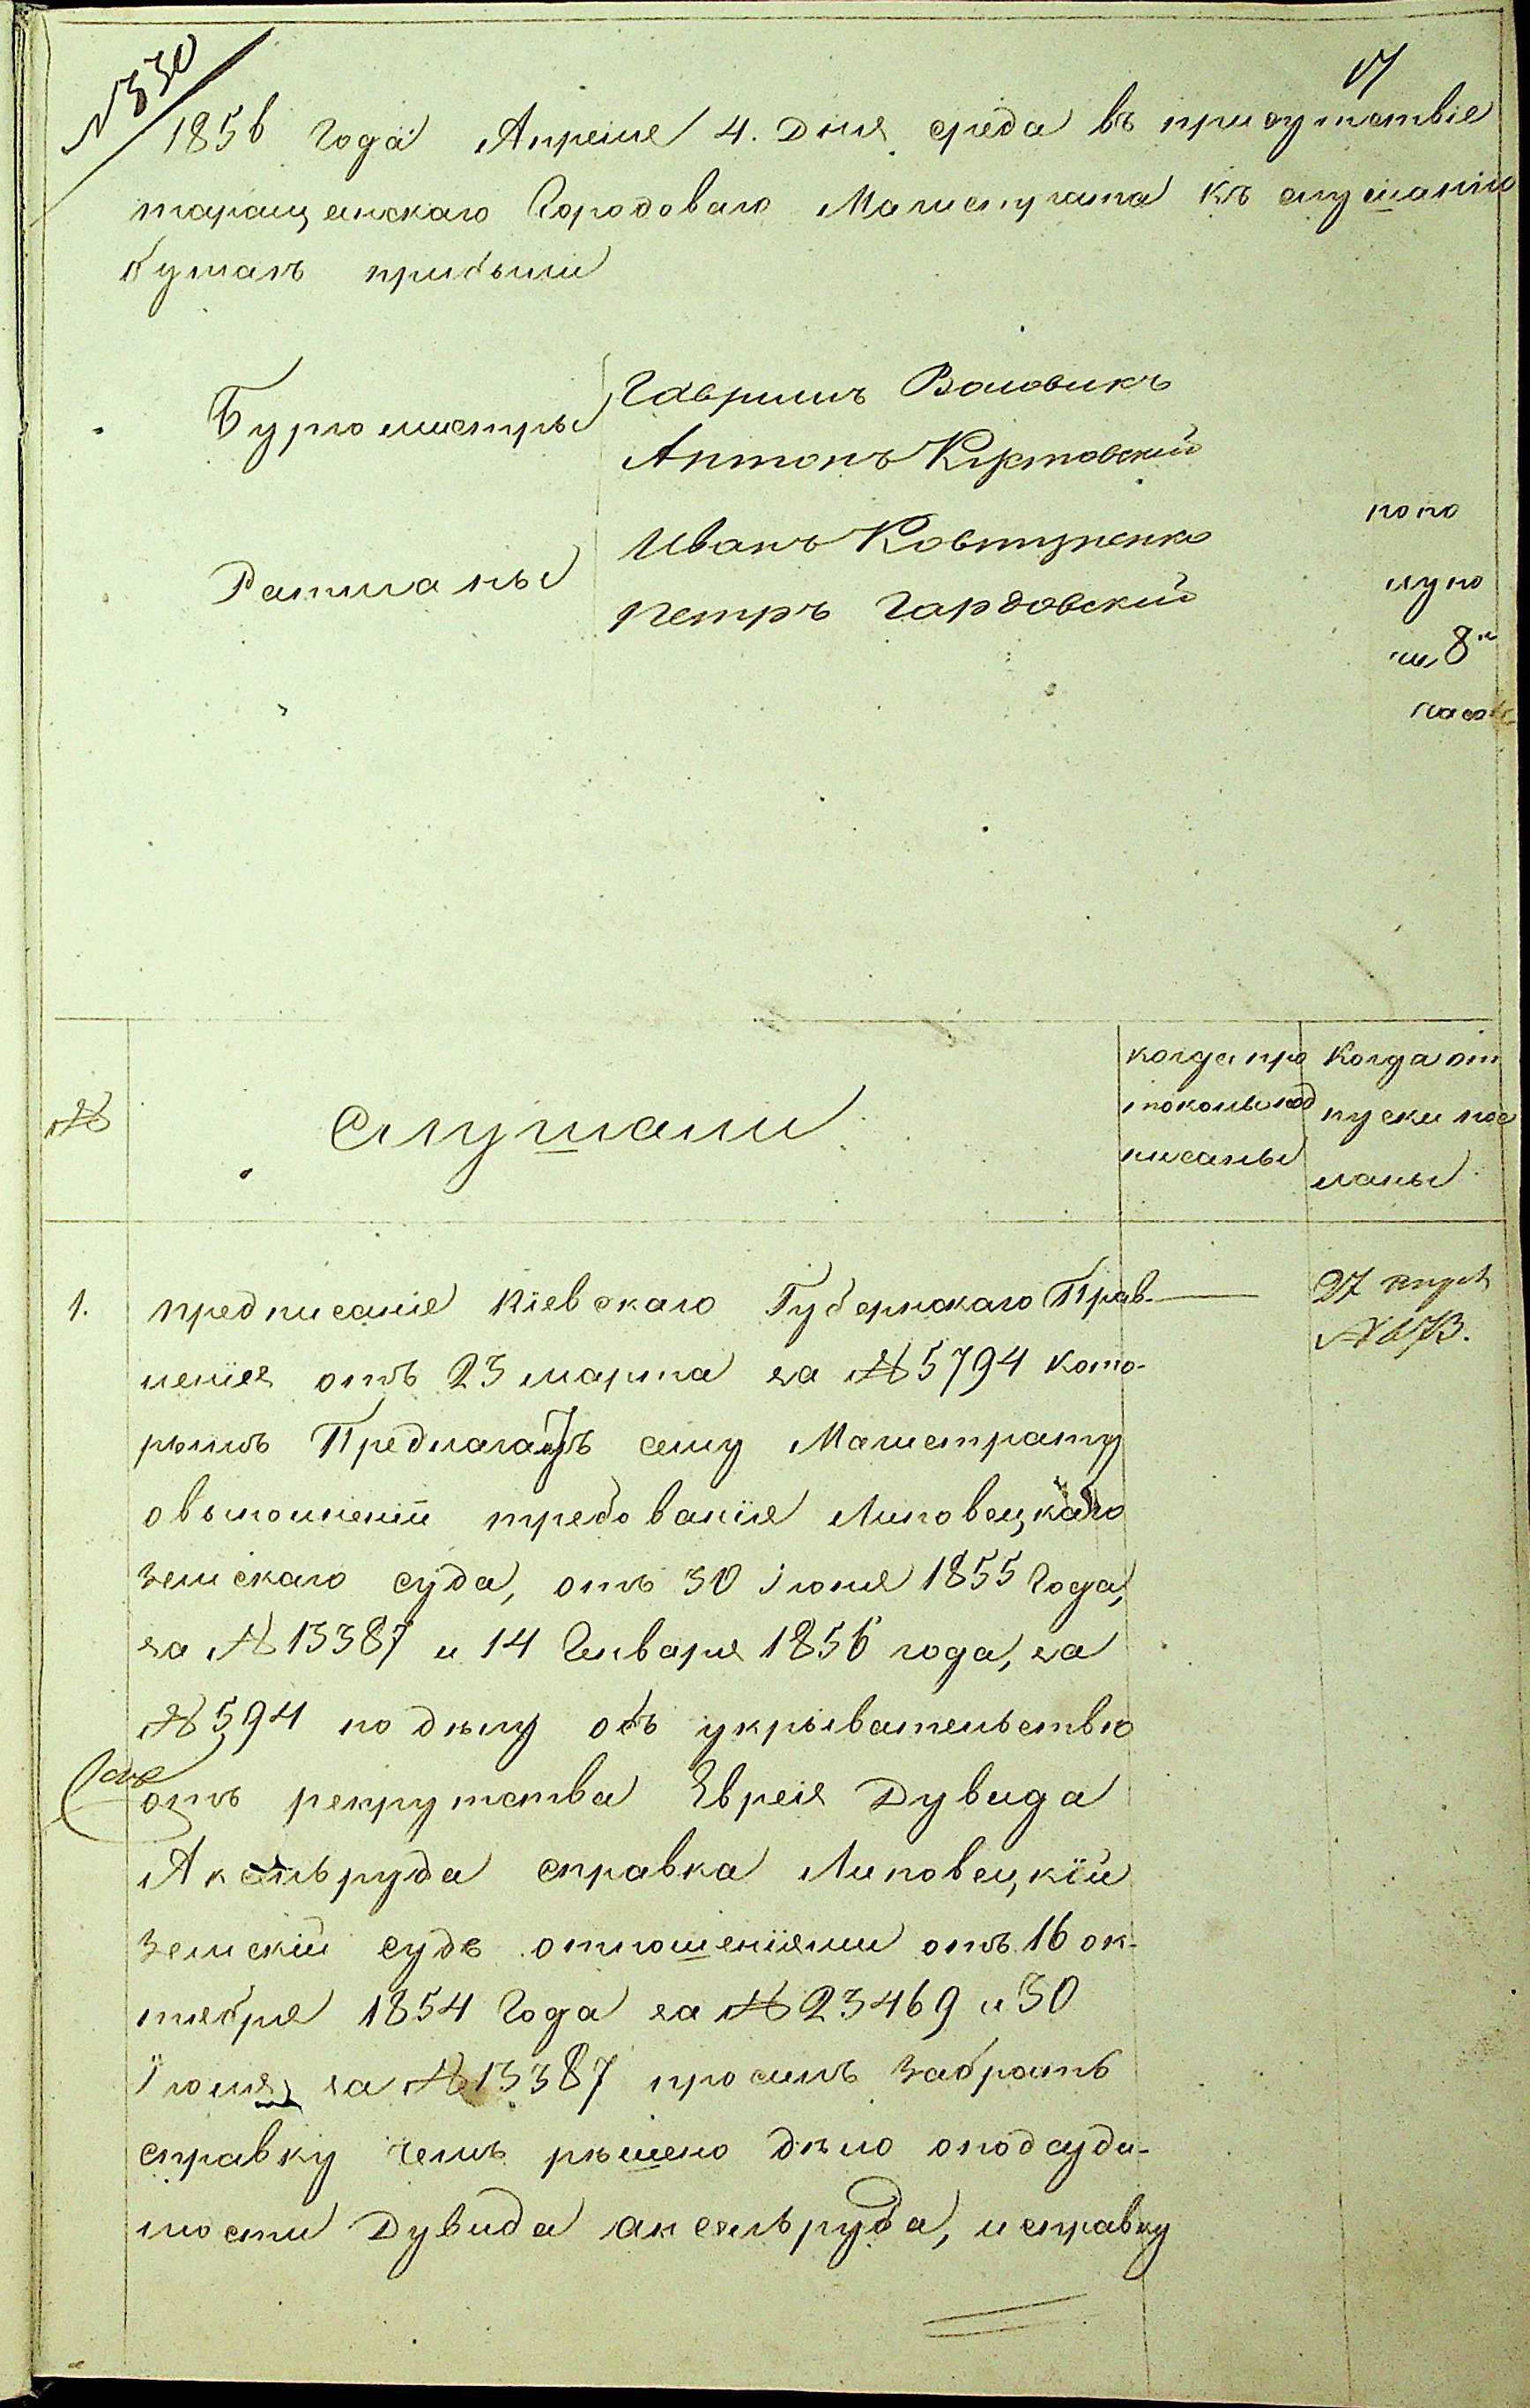 № 330
17
1856 Года Апреля 4. Дня среда въ присутствіе
таращанскаго Городоваго Магистрата къ слушанію
бумагъ прибыли
Бургомистры
Гаврилъ Воловикъ
Антонъ
Ратманы
Иванъ Ковтуненко
Петръ Гардовский
попо
лудо
ни 8
часовъ
№
Слушали
когда про
токолы под
писаны
Когда от
пуски пос
ланы
1.
предписаніе Кіевскаго Губернскаго Прав-
ленія отъ 23 марта за № 5794 кото-
рымъ Предлагаетъ сему Магистрату
овыполненіи требованіе Липовецкаго
земскаго суда, отъ 30 Іюня 1855 Года,
за № 13387 и 14 Генваря 1856 года, за
№ 594 по дѣлу объ укрывательствѣ
отъ рекрутства Еврея Дувида
Аксельруда справка Липовецкій
земскій судъ отношеніями отъ 16 ок-
тября 1854 Года за № 23469 и 30
Іюня за № 13387 просилъ забрать
справку чемъ рѣшено дѣло оподсуди-
мости Дувида аксельруда, и справку
27
№ 673.